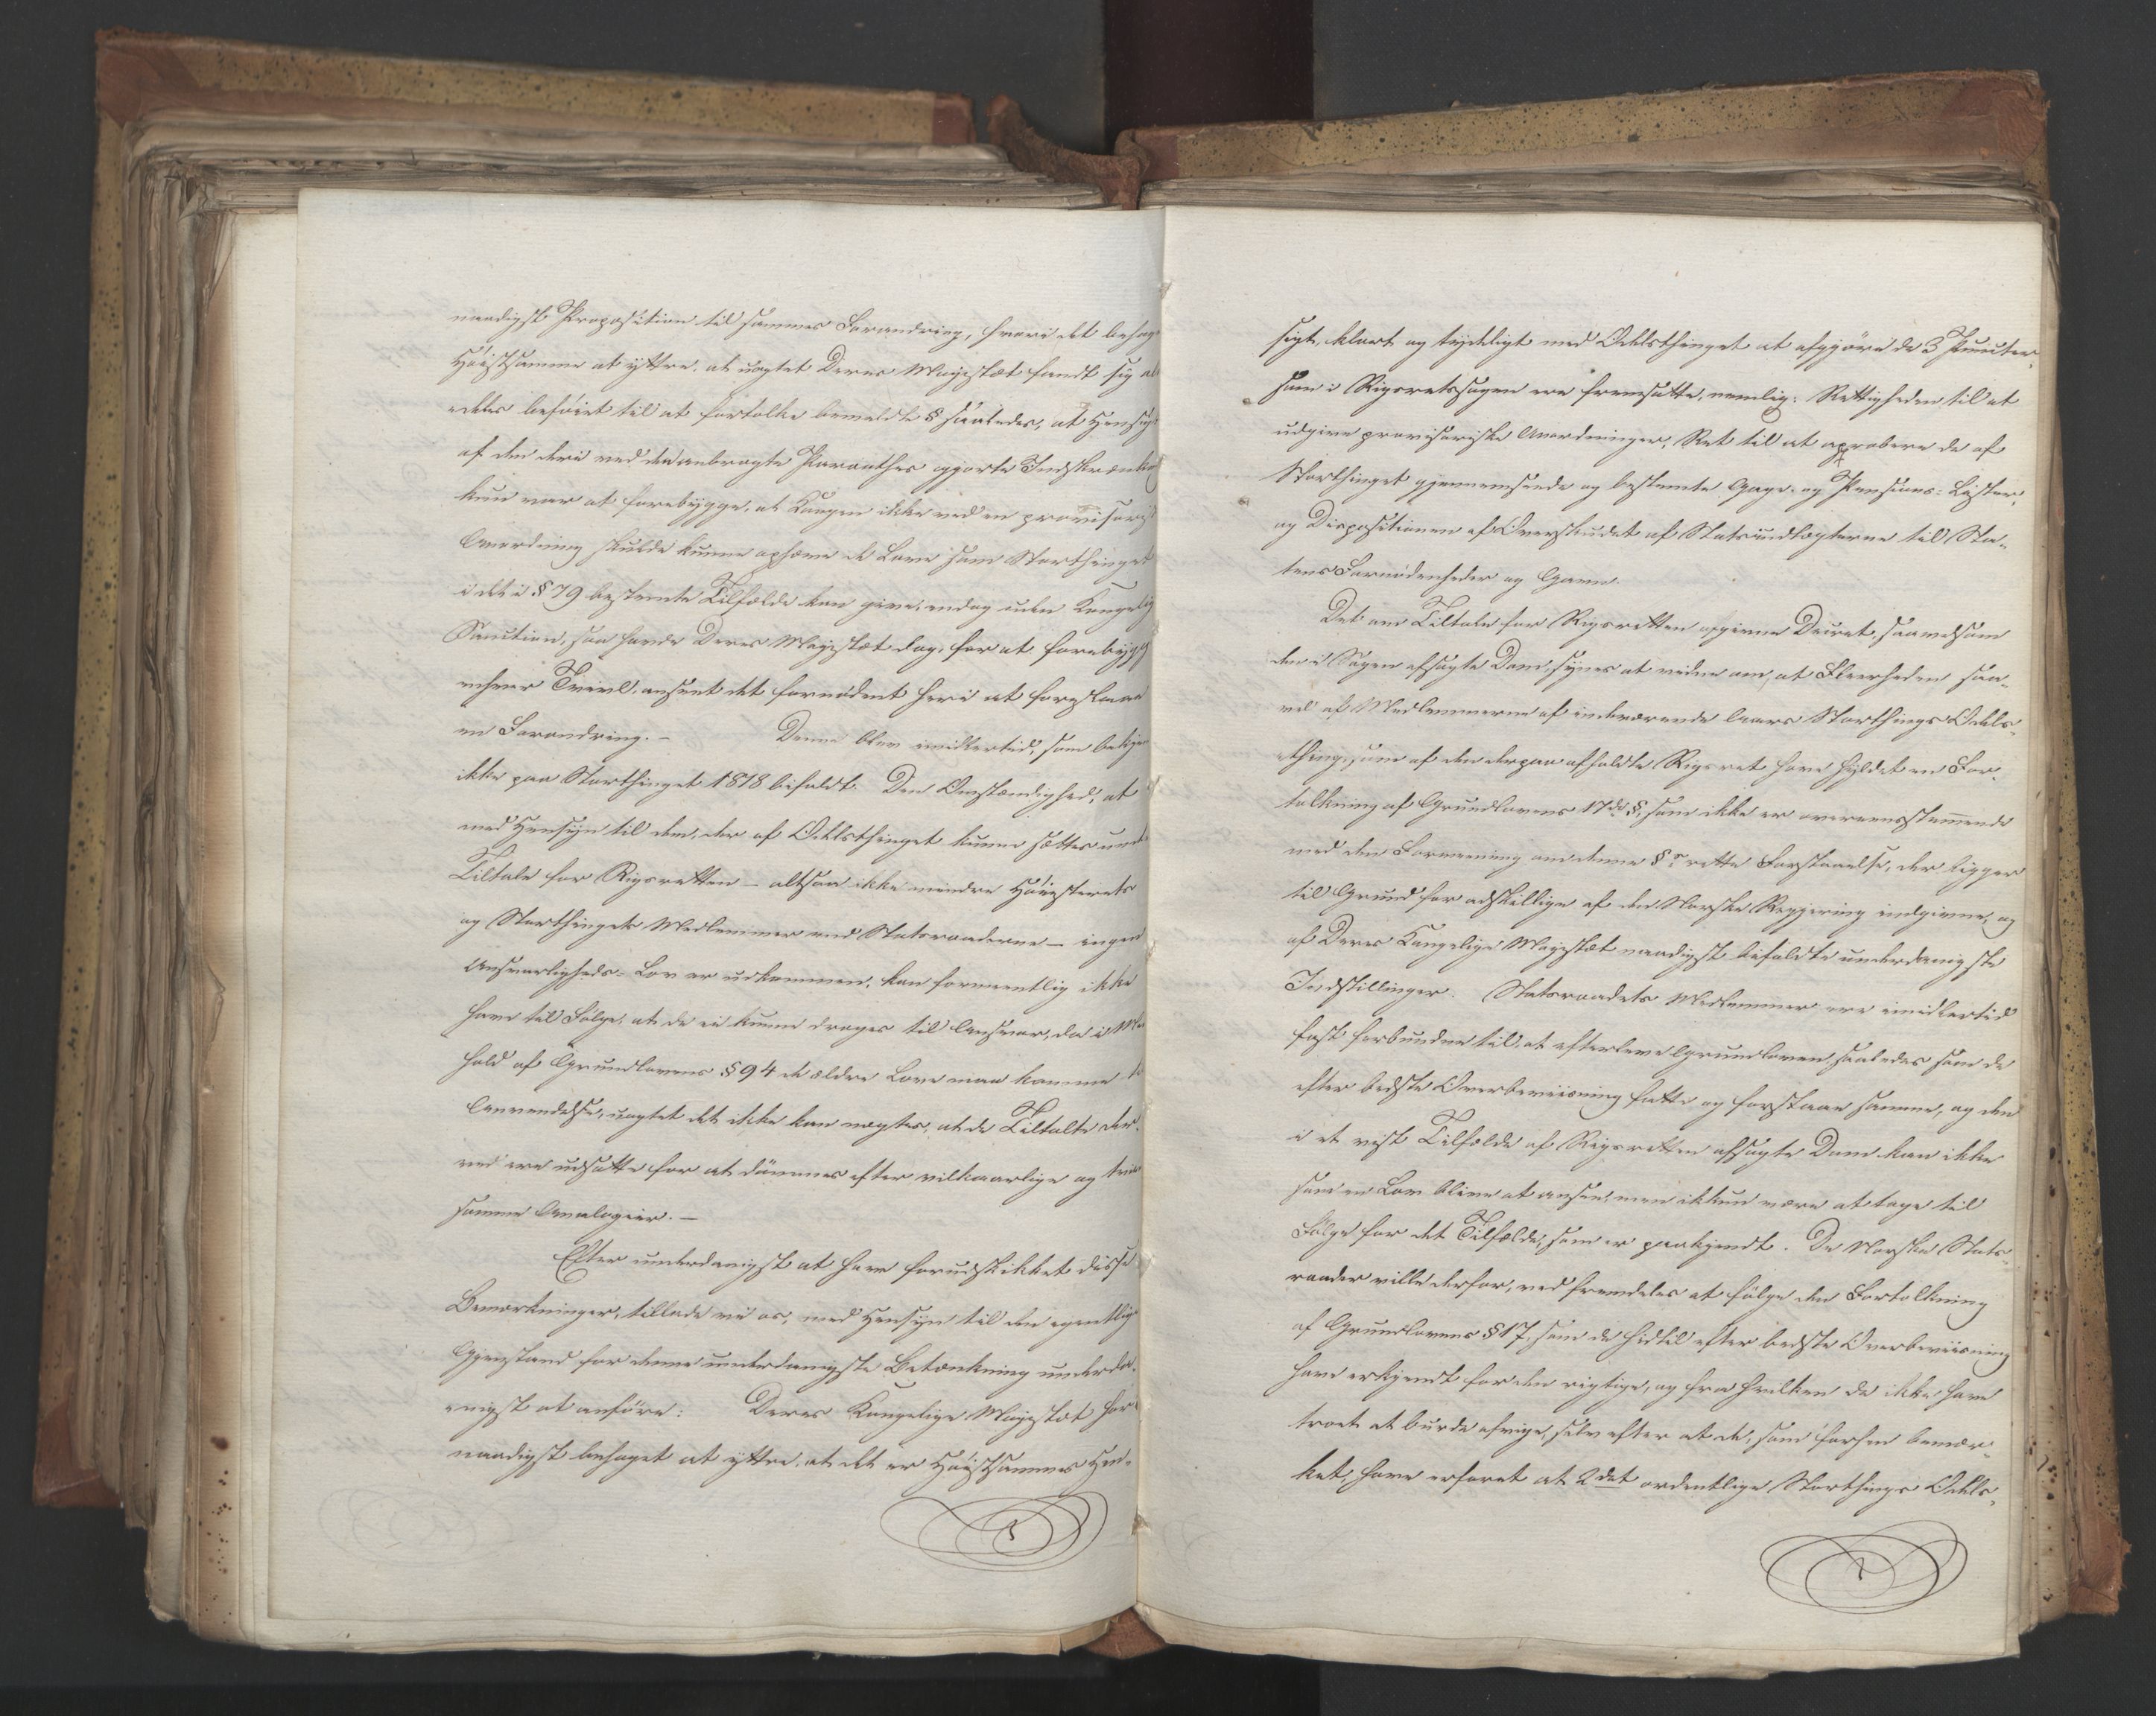 naadigst Proposition til sammes Forandring, hvori det behag
Höistsamme at yttre, at uagtet Deres Majestæt fandt sig al
edeles beföiet til at fortolke bemeldte § saaledes, at Hensigt
af den deri ved den anbragte Paranthes gjorte Indskrænkn
kun var at forebygge, at Kongen ikke ved en provisorisk
Anordning skulde kunne ophæve de Love som Storthinget
i det i § 79 bestemte Tilfælde kan give, endog uden Kongelig
Sanction, saa havde Deres Majestæt dog, for at forebygge
enhver Tvivl, anseet det fornödent heri at foreslaae
en Forandring. - Denne blev imidlertid, som bekje
ikke paa Storthinget 1818 bifaldt. Den Omstændighed, at
med Hensyn til dem, der af Odelsthinget kunne sættes unde
Tiltale for Rigsretten - altsaa ikke mindre Höiesterets
og Storthingets Medlemmer end Statsraaderne - ingen
Ansvarligheds-Lov er udkommen, kan formeentlig ikke
have til Fölge, at de ei kunne drages til Ansvar, da i Med
hold af Grundlovens § 94 de ældre Love maa komme t
Anvendelse, uagtet det ikke kan nægtes, at de Tiltalte der-
ved ere udsatte for at dömmes efter vilkaarlige og tvivl
somme Analogier. -
Efter underdanigst at have forudskikket disse
Bemærkninger, tillade vi os, med Hensyn til den egentlig
Gjenstand for denne underdanigste Betænkning underda-
nigst at anföre: Deres Kongelige Majestæt har
naadigst behaget at yttre, at det er Höistsammes Hen-
sigt, klart og tydeligt med Odelsthinget at afgjöre de 3 Puncter,
som i Rigsretssagen ere fremsatte, nemlig: Rettigheden til at
udgive provisoriske Anordninger, Ret til at approbere de af
Storthinget gjennemseede og bestemte Gage- og Pensions-Lister,
og Dispositionen af Overskudet af Statsindtægterne til Sta-
tens Fornödenheder og Gavn.
Det om Tiltale for Rigsretten afgivne Decret, saavelsom
den i Sagen afsagte Dom, synes at vidne om, at Fleerheden saa-
vel af Medlemmerne af indeværende Aars Storthings Odels-
thing, som af den derpaa afholdte Rigsret have hyldet en For-
tolkning af Grundlovens 17de §, som ikke er overeensstemmende
med den Formeening om denne §s rette Forstaaelse, der ligger
til Grund for adskillige af den Norske Regjering indgivne, og
af Deres Kongelige Majestæt naadigst bifaldte underdanigste
Indstillinger. Statsraadets Medlemmer ere imidlertid
fast forbundne til at efterleve Grundloven, saaledes som de
efter bedste Overbeviisning fatte og forstaae samme, og den
i et vist Tilfælde af Rigsretten afsagte Dom kan ikke
som en Lov blive at ansee, men ikkun være at tage til
Fölge for det Tilfælde, som er paakjendt. De Norske Stats-
raader ville derfor, ved fremdeles at fölge den Fortolkning
af Grundlovens § 17, som de hidtil efter bedste Overbeviisning
have erkjendt for den rigtige, og fra hvilken de ikke have
troet at burde afvige, selv efter at de, som forhen bemær-
ket, have erfaret at 2det ordentlige Storthings Odels-